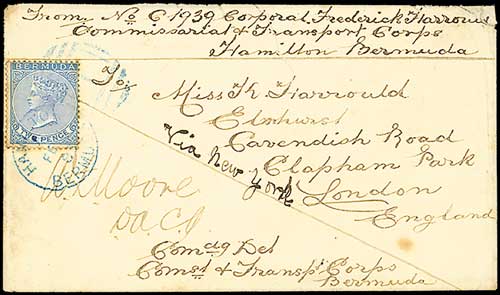 From No C/1939 Corporal Frederick Harrould
Commissariat & Transport Corps
Hamilton Bermuda
BERMUDA
TWO PENCE
Miss K Harrould
Elmhurst
Cavendish Road
Clapham Park
London
England
Via New York
HA
BERMU
Moore
DACG
Comdg Det
Comst & Transpt Corps
Bermuda